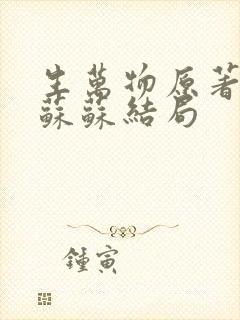 生萬物原著
蘇蘇結局
鍾寅